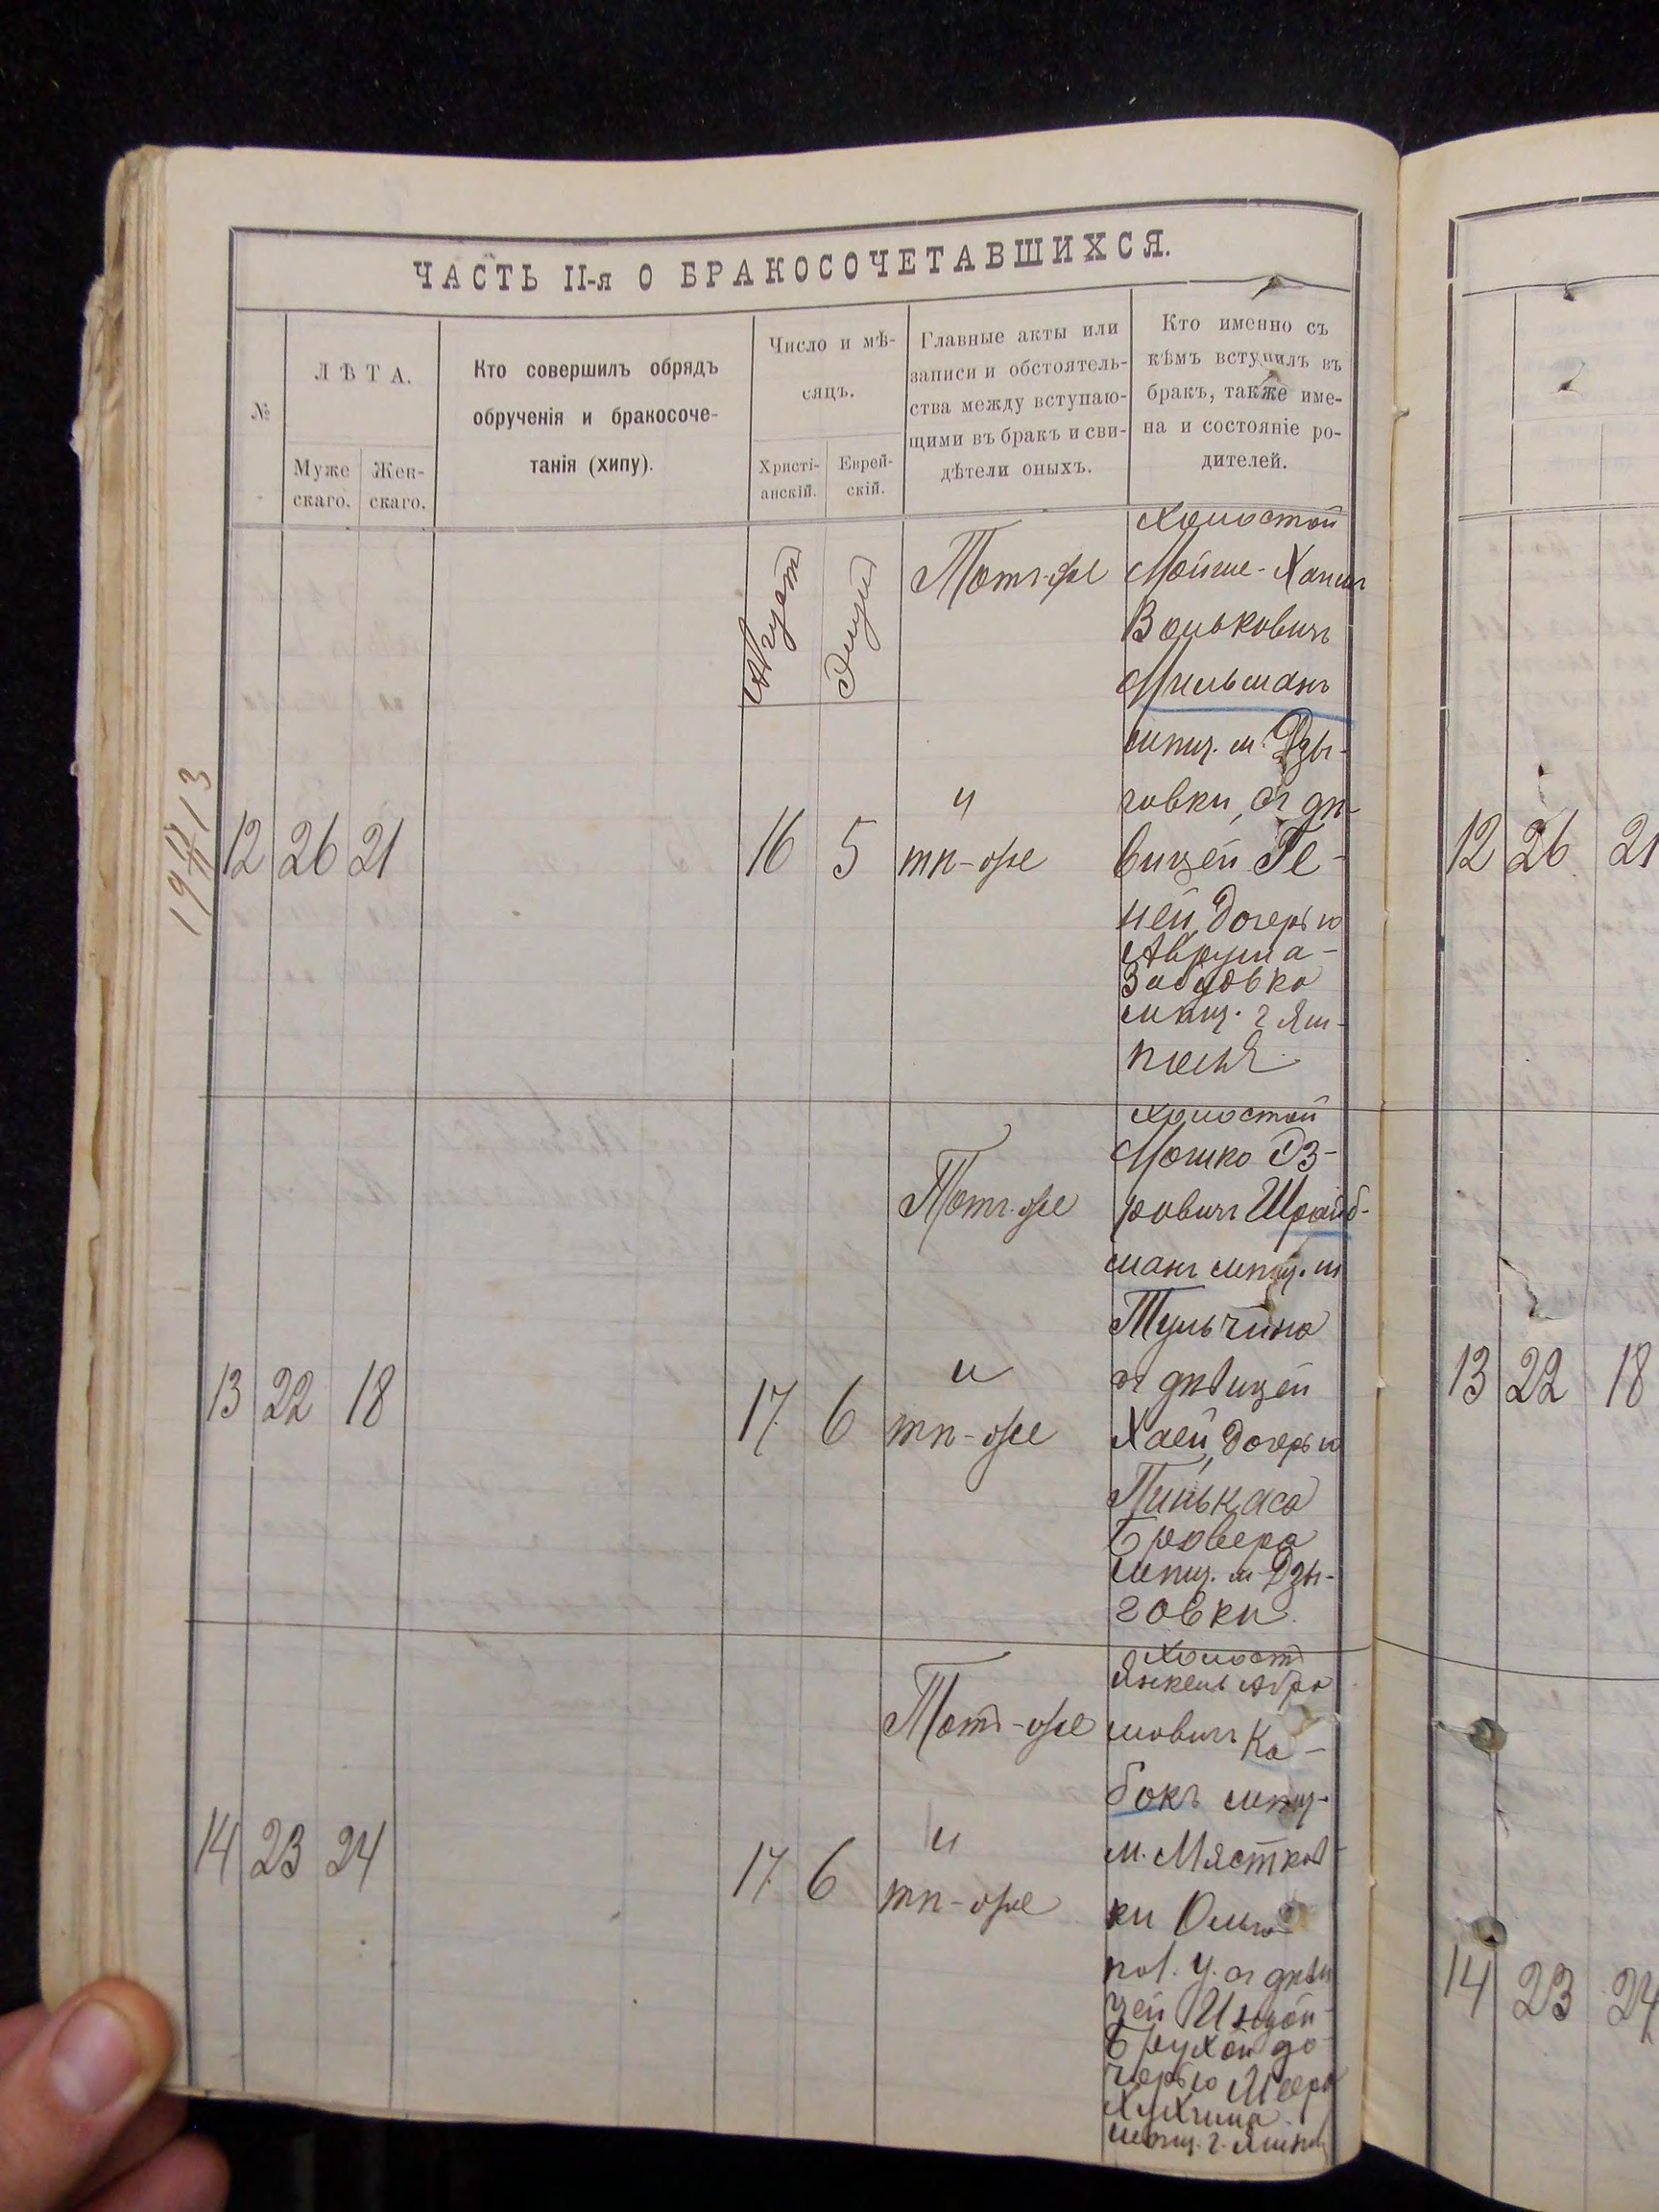 ЧАСТЬ II-я О БРАКОСОЧЕТАВШИХСЯ.
№
ЛѢТА.
Муже
скаго.
Жен-
скаго.
Кто совершилъ обрядъ
обрученія и бракосоче-
танія (хипу).
Число и мѣ-
сяцъ.
Христі-
анскій.
Еврей-
скій.
Главные акты или
записи и обстоятель-
ства между вступаю-
щими въ бракъ и сви-
дѣтели оныхъ.
Кто именно съ
кѣмъ вступилъ въ
бракъ, также име-
на и состояніе ро-
дителей.
Августъ
Элулъ
12 26 21
16 5
Тотъ-же
и
тѣ-же
холостой
Мойше-Хаимъ
Вольковичъ
Мильманъ
мѣщ. м. Дзы-
говки, съ дѣ-
вицей Ге-
ней, дочерью
Аврума-
мѣщ. г Ям-
поля
13 22 18
17 6
Тотъ-же
и
тѣ-же
холостой
Мошко Эз-
ровичъ Шрайб-
манъ мѣщ. м
Тульчина
съ дѣвицей
Хаей, дочерью
Пинькаса
Бровера
мѣщ. м Дзы-
говки.
14 23 24
17 6
Тотъ-же
и
тѣ-же
холост
Янкель Абра
мовичъ Ка-
бокъ мѣщ.
м. Мястков-
ки Ольго-
пол. у. съ дѣви
цей
Брухой до
черью Меера
мѣщ. г. Ямпол
12 26 21
13 22 18
14 23 24